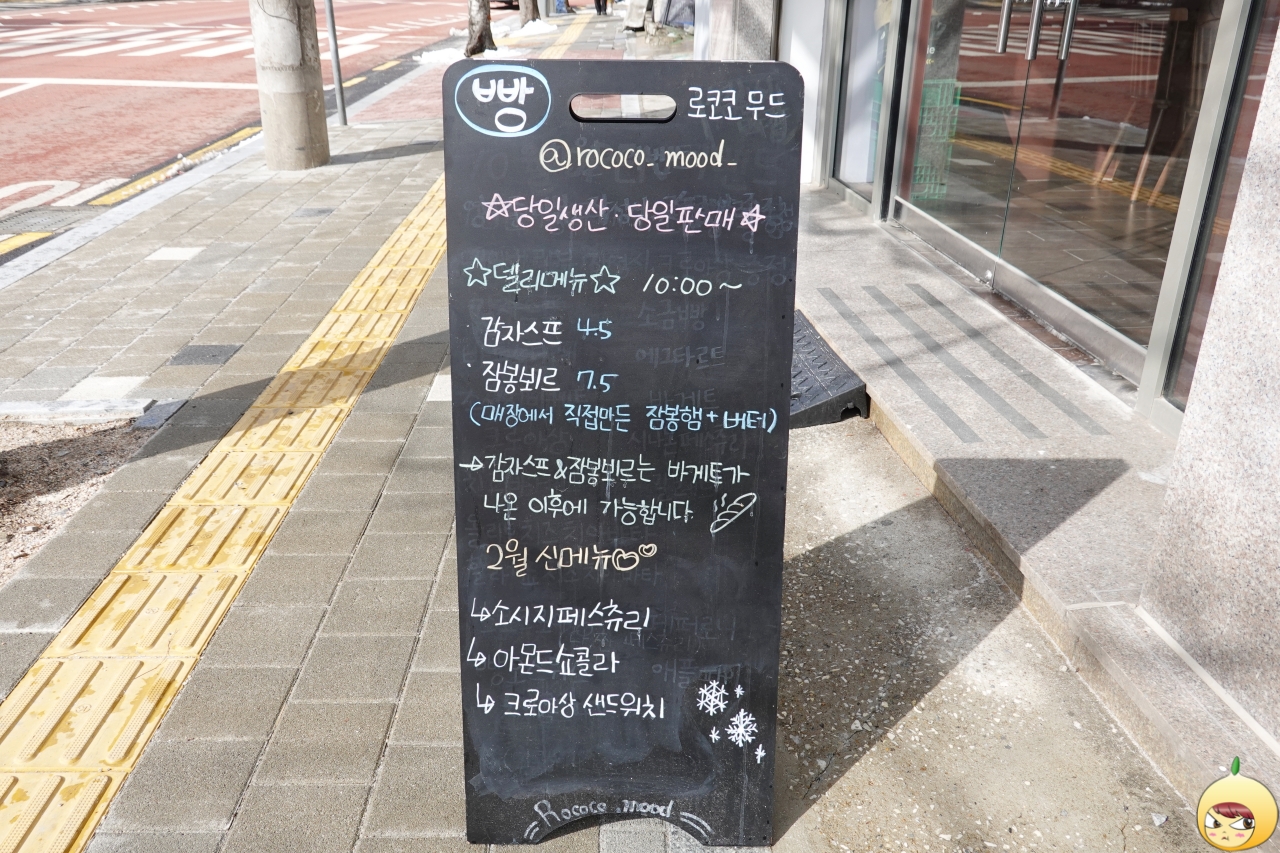 빵 로코코 무드
@rococo_mood_
☆당일생산·당일판매☆
☆델리메뉴☆ 10:00~
· 감자스프 4.5
· 잠봉뵈르 7.5
(매장에서 직접만든 잠봉햄+버터)
→감자스프&잠봉뵈르는 바게트가
나온 이후에 가능합니다.
2월 신메뉴♡♡
↳소시지페스츄리
↳아몬드쇼콜라
↳크로아상 샌드위치
Rococo mood